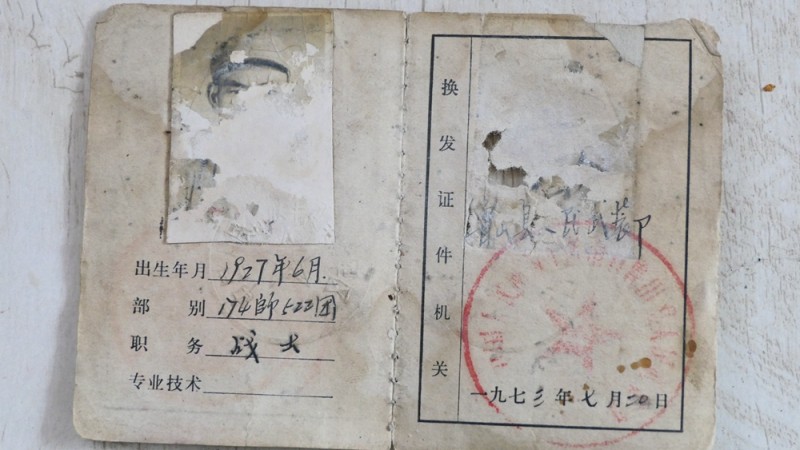 出生年月 1927年6月.
部别 174师522团
职务 战士
专业技术
换发证件机关
县人民武装部
一九七三年七月二〇日